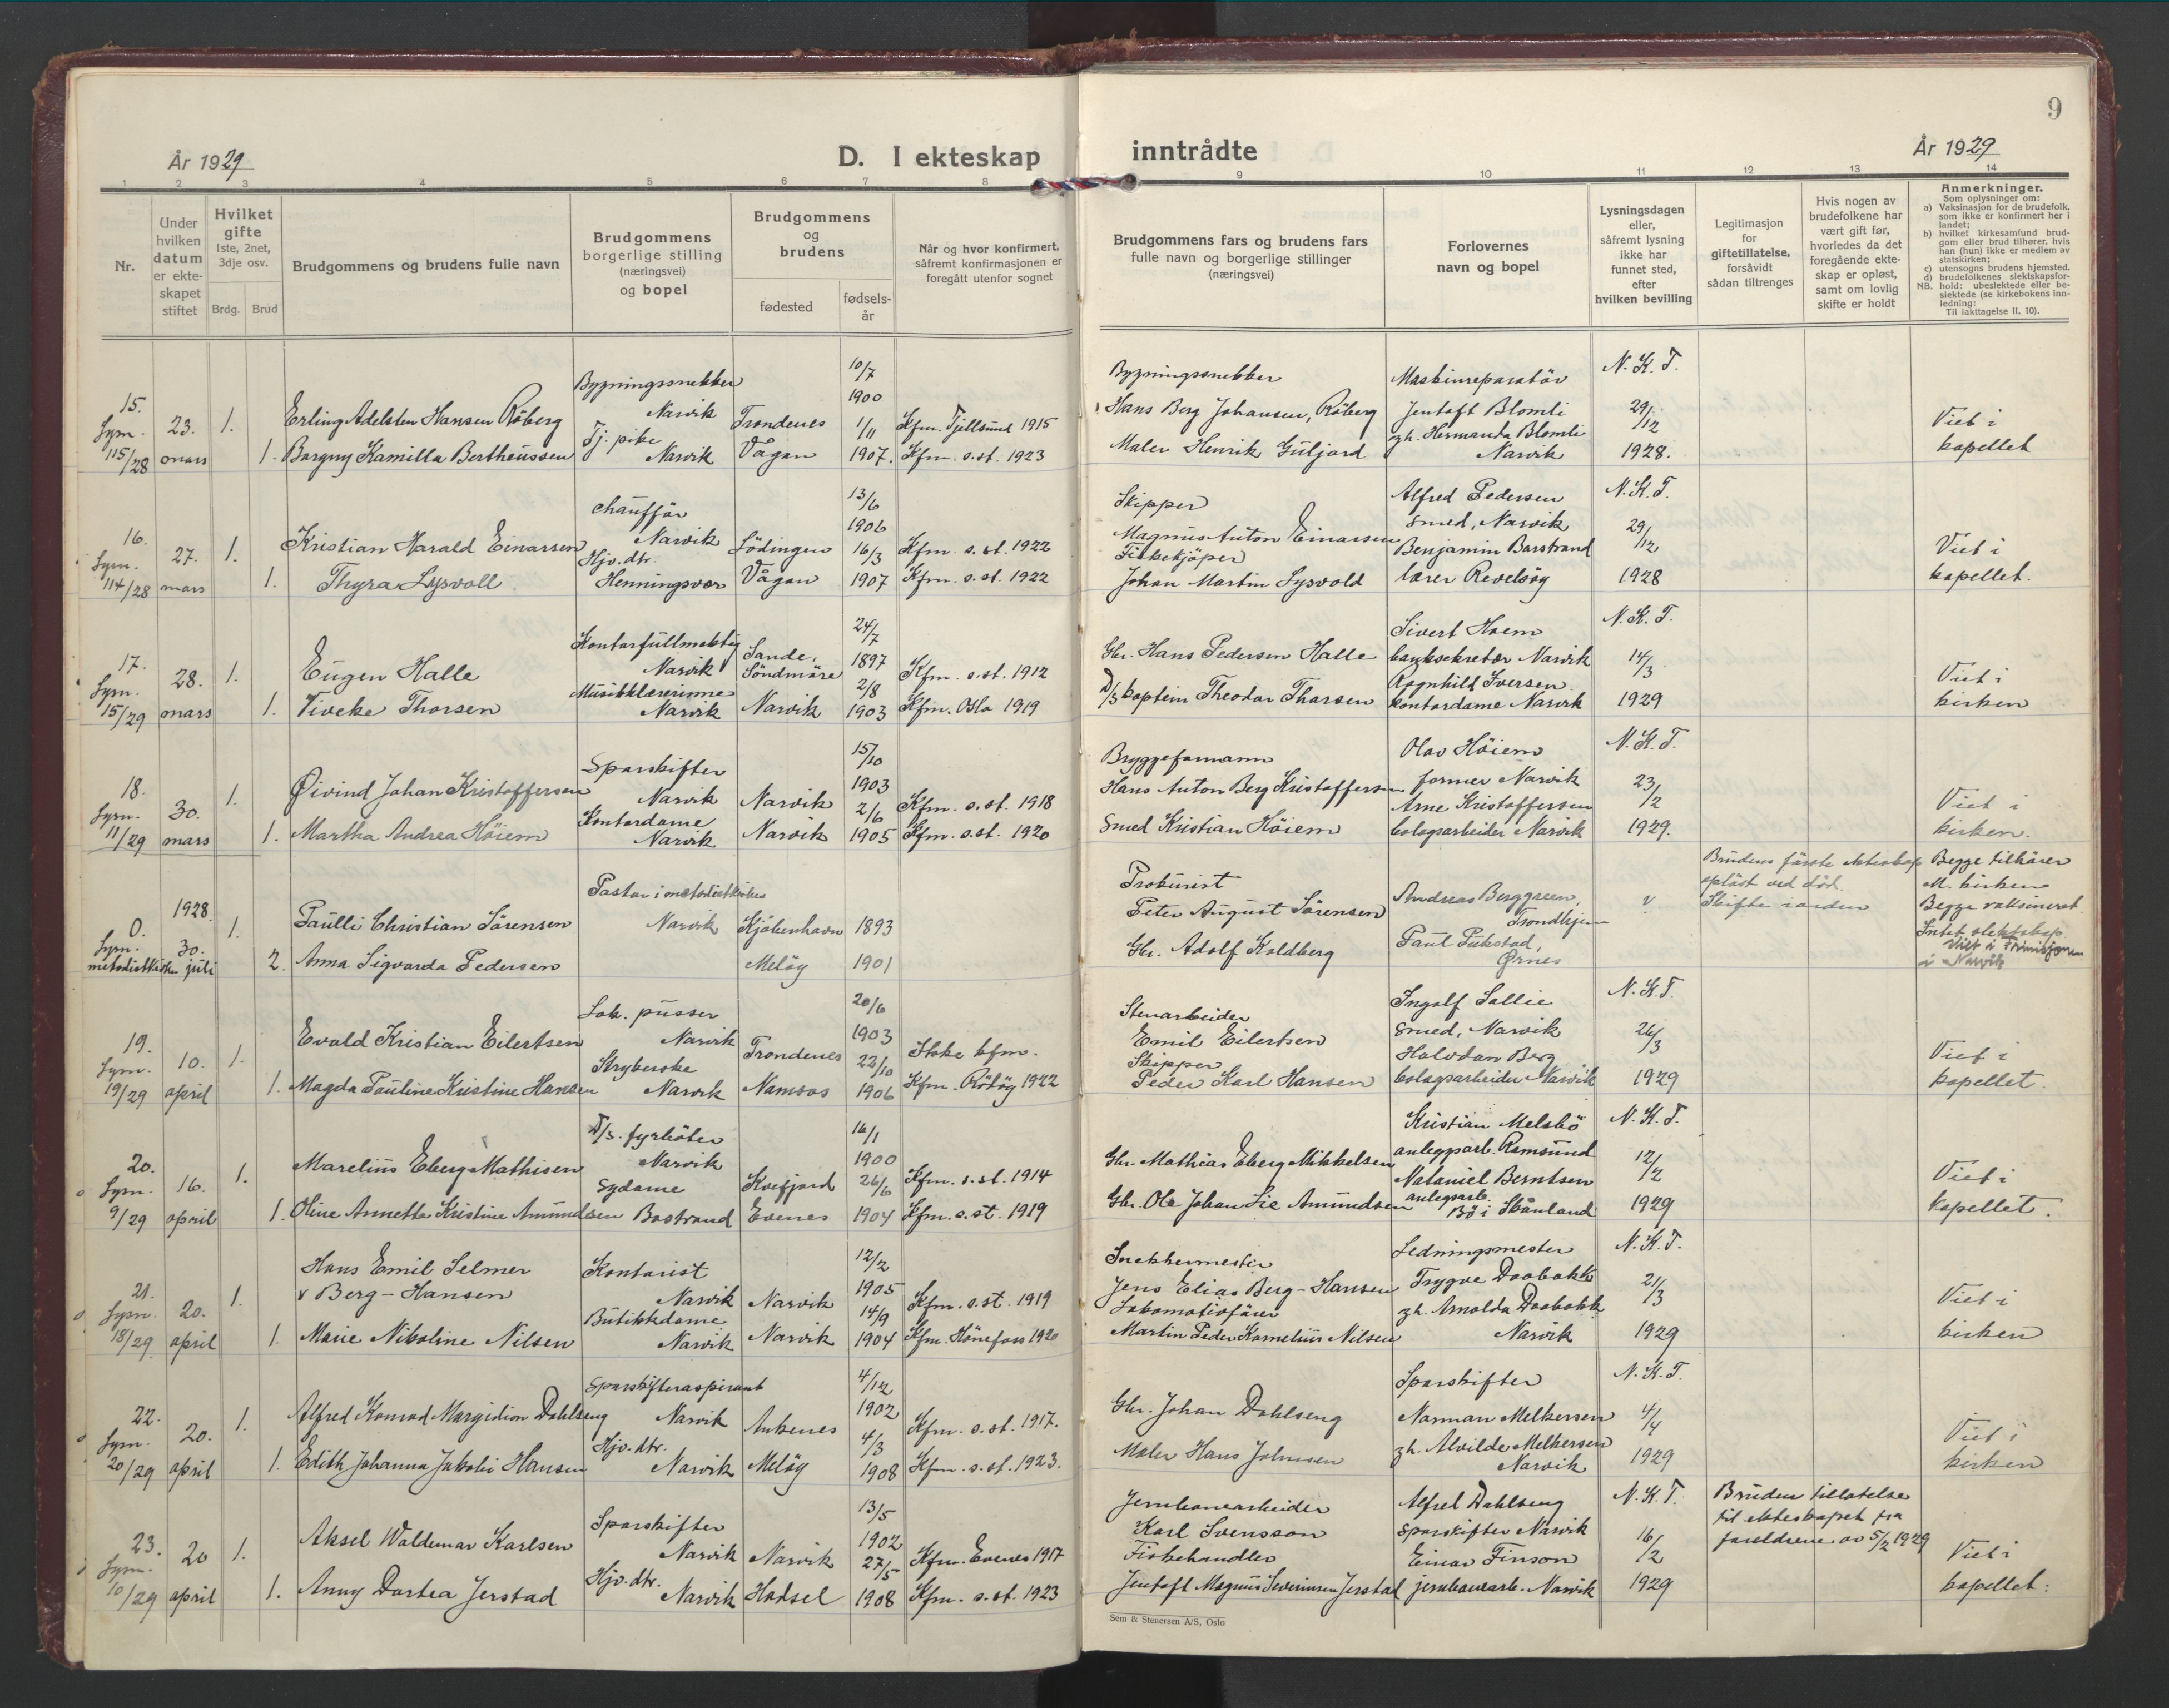 9
År 1929
D. I ekteskap inntrådte
År 1929
1 2 3 4 5 6 7 8 9 10 11 12 13 14
Nr.
Under hvilken datum er ekteskapet stiftet
Hvilket gifte
1ste, 2net, 3dje osv.
Brdg. Brud
Brudgommens og brudens fulle navn
Brudgommens borgerlige stilling (næringsvei) og bopel
Brudgommens og brudens
fødested
fødselsår
Når og hvor konfirmert, såfremt konfirmasjonen er foregått utenfor sognet
Brudgommens fars og brudens fars fulle navn og borgerlige stillinger (næringsvei)
Forlovernes navn og bopel
Lysningsdagen eller, såfremt lysning ikke har funnet sted, efter hvilken bevilling
Legitimasjon for giftetillatelse, forsåvidt sådan tiltrenges
Hvis nogen av brudefolkene har vært gift før, hvorledes da det foregående ekteskap er opløst, samt om lovlig skifte er holdt
Anmerkninger.
Som oplysninger om:
a) Vaksinasjon for de brudefolk, som ikke er konfirmert her i landet;
b) hvilket kirkesamfund brudgom eller brud tilhører, hvis han (hun) ikke er medlem av statskirken;
c) utensogns brudens hjemsted.
d) brudefolkenes slektskapsforhold: ubeslektede eller beslektede (se kirkebokens innledning:
NB.
Til iakttagelse II. 10).
15. Lysn. 115/28
23. mars
1.
Erling Adelsten Hansen Röberg
Bygningssnekker Narvik
Trondenes
10/7 1900
Kfm. Tjellsund 1915
Bygningssnekker Hans Berg Johansen, Röberg
Maskinreparatör Jentoft Blomli
N. K. T. 29/12 1928.
Viet i kapellet
1. Borgny Kamilla Bertheussen
Tj. pike Narvik
Vågan
1/11 1907.
Kfm. s. st. 1923
Maler Henrik Guljord
og h. Hermanda Blomli Narvik
16. Lysn. 114/28
27. mars
1.
Kristian Harald Einarsen
chaufför Narvik
Lödingen
13/6 1906
Kfm. s. st. 1922
Skipper Magnus Anton Einarsen
Alfred Pedersen smed, Narvik
N. K. T. 29/12 1928
Viet i kapellet.
1. Thyra Lysvoll
Hjv. dtr. Henningsvær
Vågan
16/3 1907
Kfm. s. st. 1922
Fiskekjöper Johan Martin Lysvold
Benjamin Barstrand lærer
17. Lysn. 15/29
28. mars
1.
Eugen Halle
Kontorfullmektig Narvik
Sande, Söndmöre
24/7 1897
Kfm. s. st. 1912
Gbr. Hans Pedersen Halle
Sivert Hoem banksekretær Narvik
N. K. T. 14/3 1929
Viet i kirken
1. Viveke Thorsen
Musikklærerinne Narvik
Narvik
2/8 1903
Kfm. Oslo 1919
D/S kaptein Theodor Thorsen
Ragnhild Iversen kontordame Narvik
18. Lysn. 11/29
30. mars
1.
Øivind Johan Kristoffersen
Sporskifter Narvik
Narvik
15/10 1903
Kfm. s. st. 1918
Bryggeformann Hans Anton Berg Kristoffersen
Olav Höiem former Narvik
N. K. T. 23/2 1929.
Viet i kirken.
1. Martha Andrea Höiem
Kontordame Narvik
Narvik
2/6 1905
Kfm. s. st. 1920
Smed Kristian Höiem
Arne Kristoffersen bolagsarbeider Narvik
0. Lysn. metodistkirken
1928 30. juli
1.
Paulli Christian Sörensen
Pastor i metodistkirken Narvik
Kjöbenhavn
1893
Prokurist Peter August Sörensen
Andreas Berggreen, Trondhjem
Brudens förste ekteskap oplöst ved död. Skifte i orden
Begge tilhörer M. kirken Begge vaksinert. Intet slektskap Viet i Trimisjonen i Narvik
2. Anna Sigvarda Pedersen
Melöy
1901
Gbr. Adolf Koldberg
Paul Pukstad, Ørnes
19. Lysn. 19/29
10. april
1.
Evald Kristian Eilertsen
Lok. pusser Narvik
Trondenes
20/6 1903
Ikke kfm.
Stenarbeider Emil Eilertsen
Ingolf Sollie smed, Narvik
N. K. T. 26/3 1929
Viet i kapellet.
1. Magda Pauline Kristine Hansen
Strykerske Narvik
Namsos
23/10 1906
Kfm. Rödöy 1922
Skipper Peder Karl Hansen
Halvdan Berg bolagsarbeider Narvik
20. Lysn. 9/29
16. april
1.
Marelius Eberg Mathisen
D/S. fyrböter Narvik
Kvefjord
16/1 1900
Kfm. s. st. 1914
Gbr. Mathias Eberg Mikkelsen
Kristian Melsbö anleggsarb. Ramsund
N. K. T. 12/2 1929
Viet i kapellet.
1. Oline Annette Kristine Amundsen
Sydame Bostrand
Evenes
26/6 1904
Kfm. s. st. 1919
Gbr. Ole Johan Lie Amundsen
Nataniel Berntsen anlegsarb. Bö i Skånland
21. Lysn. 18/29
20. april
1.
Hans Emil Selmer Berg-Hansen
Kontorist Narvik
Narvik
12/2 1905
Kfm. s. st. 1919
Snekkermester Jens Elias Berg-Hansen
Ledningsmester Trygve Doobakk
N. K. T. 21/3 1929
Viet i kirken
1. Marie Nikoline Nilsen
Butikkdame Narvik
Narvik
14/9 1904
Kfm. Hönefoss 1920
Lokomotivförer Martin Peder Kornelius Nilsen
og h. Arnolda Doobakk Narvik
22. Lysn. 20/29
20. april
1.
Alfred Konrad Margidion Dahlseng
Sporskifteraspirant Narvik
Ankenes
4/12 1902
Kfm. s. st. 1917.
Gbr. Johan Dahlseng
Sporskifter Norman Melkersen
N. K. T. 4/4 1929
Viet i kirken
1. Edith Johanna Jakobi Hansen
Hjv. dtr. Narvik
Melöy
4/3 1908
Kfm. s. st. 1923.
Maler Hans Johnsen
og h. Alvilde Melkersen Narvik
23. Lysn. 10/29
20 april
1.
Aksel Waldemar Karlsen
Sporskifter Narvik
Narvik
13/5 1902
Kfm. Evenes 1917
Jernbanearbeider Karl Svensson
Alfred Dahlseng sporskifter Narvik
N. K. T. 16/2 1929
Bruden tillatelse til ekteskapet fra foreldrene av 5/2 1929
Viet i kapellet.
1. Anny Dortea Jerstad
Hjv. dtr. Narvik
Hadsel
27/5 1908
Kfm. s. st. 1923
Fiskehandler Jentoft Magnus Severinsen Jerstad
Einar Finson jernbanearb. Narvik
Sem & Stenersen A/S, Oslo